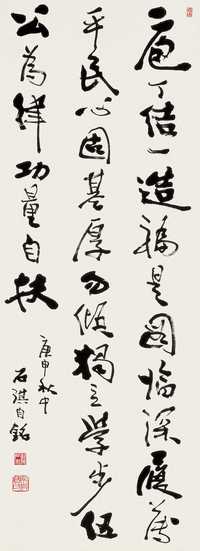 庖丁结一造福是图临深履薄
平民心固基厚勿倾独立学步伍
公为绎功量自扶
庚申秋中
石淇自铭